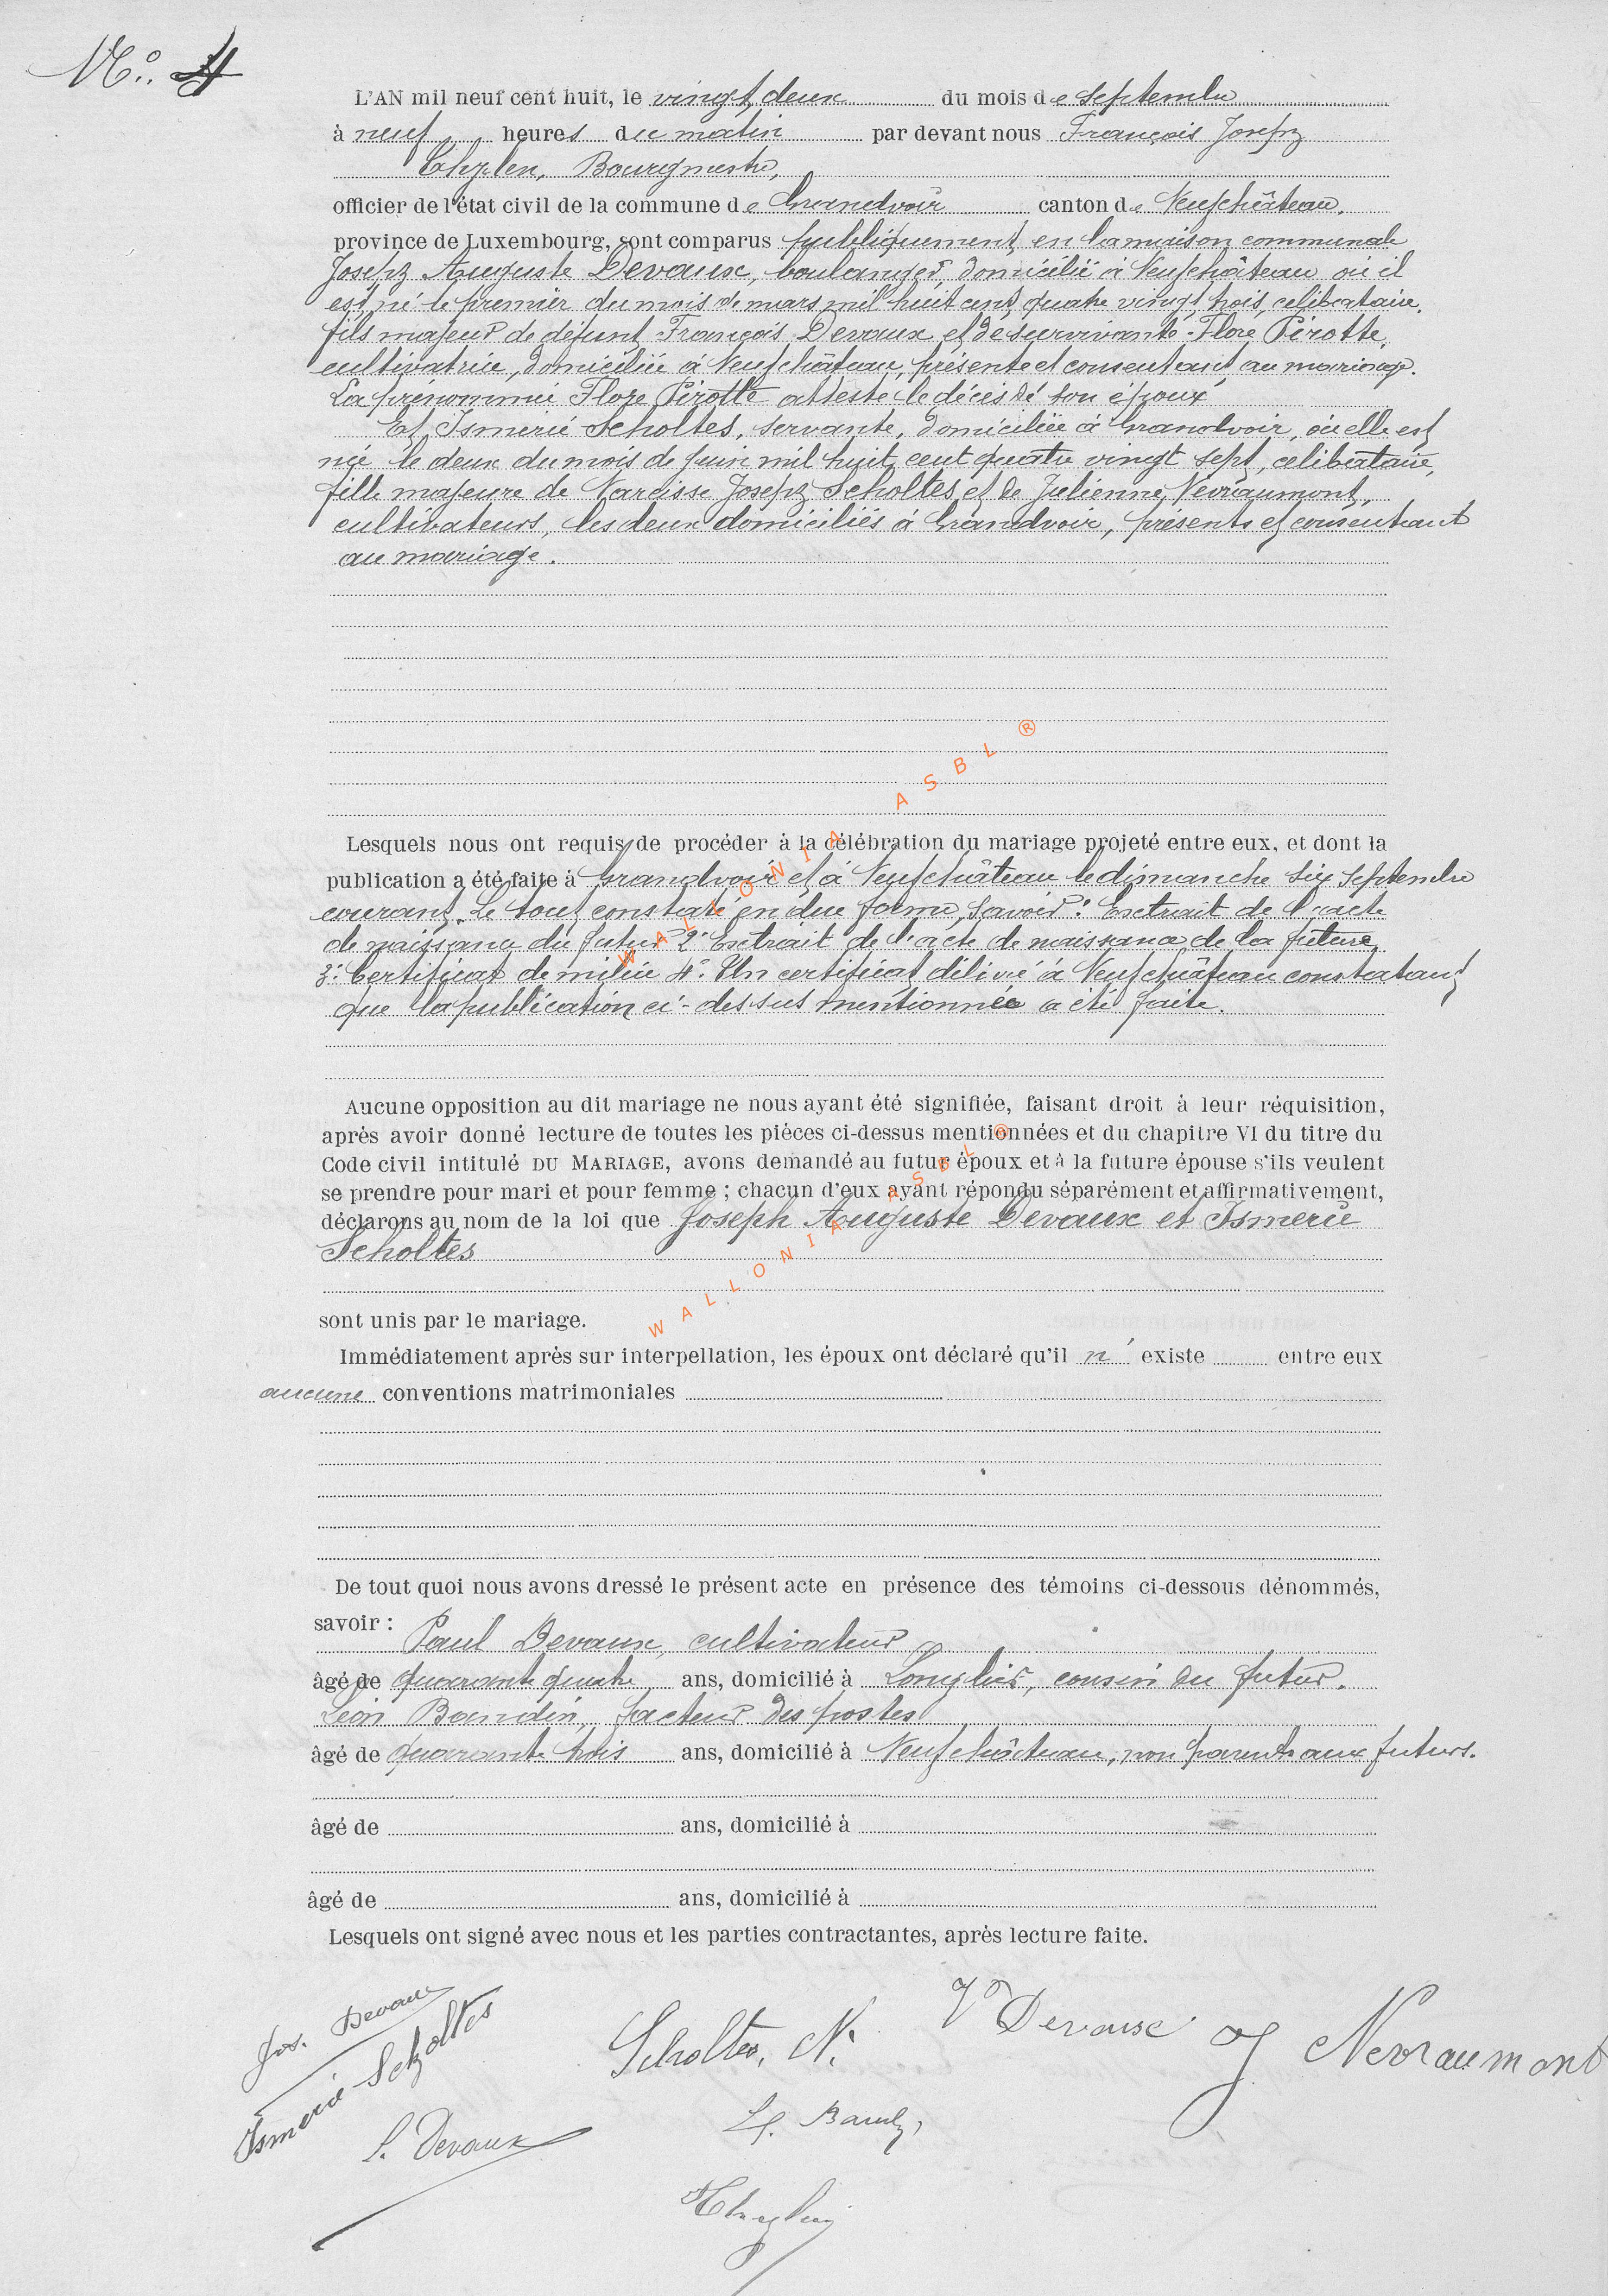 No. 4
L'AN mil neuf cent huit, le vingt deux du mois de Septembre
à neuf heures du matin par devant nous François Joseph
Bourgmestre,
officier de l'état civil de la commune de Grandvoir canton de Neufchâteau,
province de Luxembourg, sont comparus publiquement en la maison communale
Joseph Auguste Devaux, boulanger, domicilié à Neufchâteau où il
est né le premier du mois de mars mil huit cent quatre vingt trois, célibataire,
fils majeur de défunt François Devaux et de survivante Flore Pirotte,
cultivatrice, domiciliée à Neufchâteau, présente et consentant au mariage.
La prénommée Flore Pirotte atteste le décès de son époux
Et Ismerie Scholtes, servante, domiciliée à Grandvoir, où elle est
née le deux du mois de juin mil huit cent quatre vingt sept, célibataire,
fille majeure de Narcisse Joseph Scholtes et de Julienne Nevraumont,
cultivateurs, les deux domiciliés à Grandvoir, présents et consentant
au mariage.
Lesquels nous ont requis de procéder à la célébration du mariage projeté entre eux, et dont la
publication a été faite à Grandvoir et à Neufchâteau le dimanche six Septembre
courant. Le tout constaté en due forme, savoir: Extrait de l'acte
de naissance du futur 2° Extrait de l'acte de naissance de la future
3° Certificat de milice 4° Un certificat délivré à Neufchâteau constatant
que la publication ci-dessus mentionnée a été faite.
Aucune opposition au dit mariage ne nous ayant été signifiée, faisant droit à leur réquisition,
après avoir donné lecture de toutes les pièces ci-dessus mentionnées et du chapitre VI du titre du
Code civil intitulé DU MARIAGE, avons demandé au futur époux et à la future épouse s'ils veulent
se prendre pour mari et pour femme ; chacun d'eux ayant répondu séparément et affirmativement,
déclarons au nom de la loi que Joseph Auguste Devaux et Ismerie
Scholtes
sont unis par le mariage.
Immédiatement après sur interpellation, les époux ont déclaré qu'il n' existe entre eux
aucune conventions matrimoniales
De tout quoi nous avons dressé le présent acte en présence des témoins ci-dessous dénommés,
savoir : Paul Devaux, cultivateur
âgé de quarante quatre ans, domicilié à Longlier, cousin du futur.
Léon Baudin, facteur des postes
âgé de quarante trois ans, domicilié à Neufchâteau, non parents aux futurs.
âgé de ans, domicilié à
âgé de ans, domicilié à
Lesquels ont signé avec nous et les parties contractantes, après lecture faite.
Jos. Devaux
Ismerie Scholtes
Scholtes, N.
Ve Devaux
J Nevraumont
Devaux
WALLONIA ASBL ®
WALLONIA ASBL ®